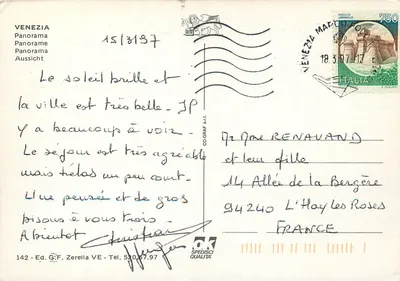 VENEZIA
Panorama
Panorame
Panorama
Aussicht
15/3/97
Le soleil brille et
la ville est très belle - IP
y a beaucoup à voir -
Le séjour est très agréable
mais hélas un peu court -
Une pensée et de gros
bisous à vous trois -
A bientôt Christian
142 - Ed. G.F. Zerella VE - Tel. 520.67.97
CO.GRAF s.r.l.
VENEZIA MARCO
18.3.97-17
ITALIA
Mr Mme RENAVAND
et leur fille
14 Allée de la Bergère
94240 L'Hay Les Roses
FRANCE
OK
SPEDISCI
QUALITÀ